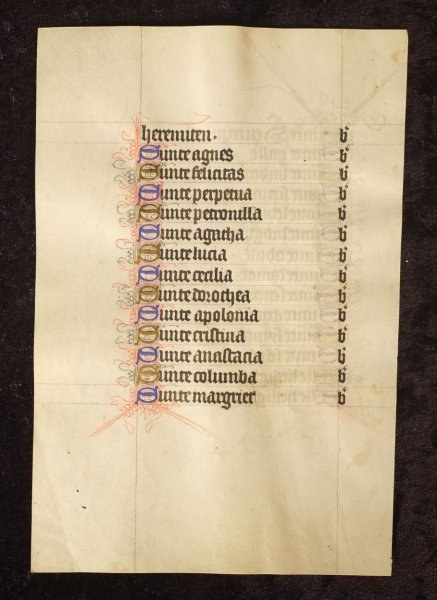 heremiten. b.
Sunte agnes b.
Sunte felicitas b.
Sunte perpetua b.
Sunte petronilla b.
Sunte agatha b.
Sunte lucia b.
Sunte cecilia b.
Sunte dorothea b.
Sunte apolonia b.
Sunte cristina b.
Sunte anastacia b.
Sunte columba b.
Sunte margriet b.